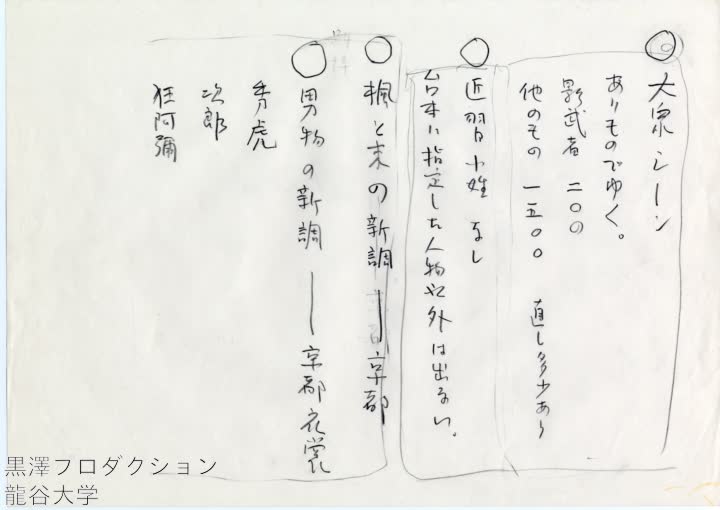 大衆シーン
ありものでゆく。
影武者 二〇〇
他のもの 一五〇〇 直し多少あり
近習小姓 なし
台本に指定した人物以外は出ない。
楓と末の新調――京都
男物の新調――京都衣裳
秀虎
次郎
狂阿彌
黒澤プロダクション
龍谷大学